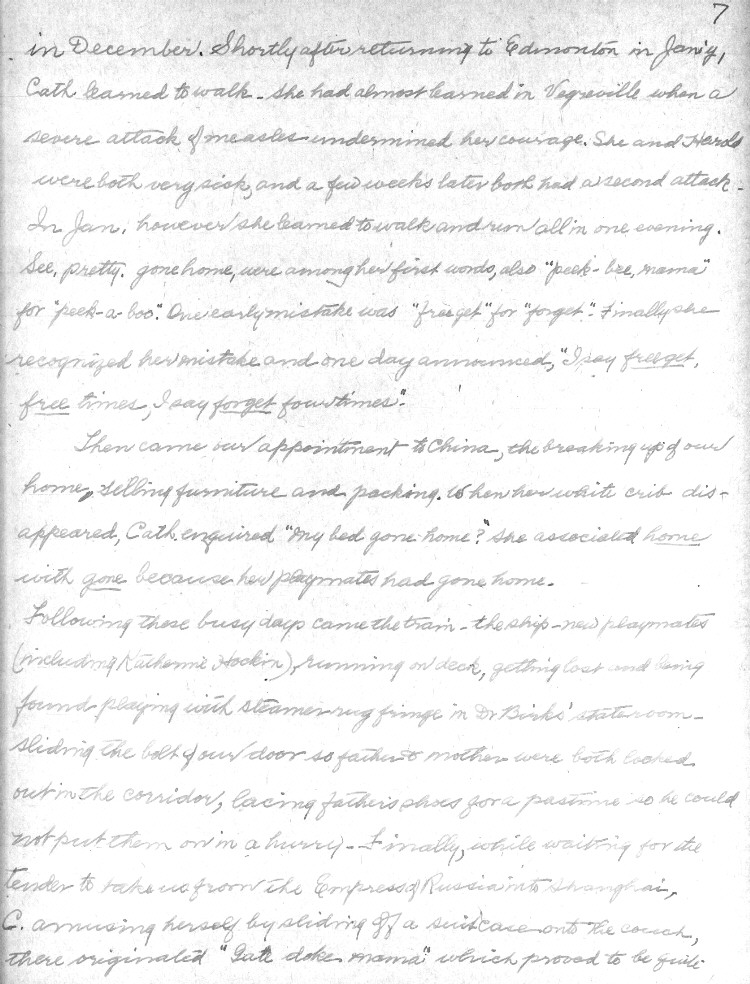 7
in December. Shortly after returning to Edmonton in Jan'y,
Cath learned to walk - she had almost learned in Vegreville when a
severe attack of measles undermined her courage. She and Harold
were both very sick, and a few weeks later both had a second attack -
In Jan. however she learned to walk and run all in one evening.
See, pretty, gone home, were among her first words, also "peek-bee, mama"
for "peek-a-boo". One early mistake was "freeget" for "forget". Finally she
recognized her mistake and one day announced, "I say freeget,
free times, I say forget four times".
Then came our appointment to China, the breaking up of our
home, selling furniture and packing. When her white crib dis-
appeared, Cath. enquired "My bed gone home?" She associated home
with gone because her playmates had gone home.
Following these busy days came the train - the ship - new playmates
(including Katherine Hockin), running on deck, getting lost and being
found playing with steamer rug fringe in Dr Birks' stateroom -
sliding the bolt of our door so father & mother were both locked
out in the corridor, lacing father's shoes for a pastime so he could
not put them on in a hurry - Finally, while waiting for the
tender to take us from the Empress of Russia into Shanghai,
C. amusing herself by sliding off a suitcase onto the couch,
there originated "Gate doke mama" which proved to be quite